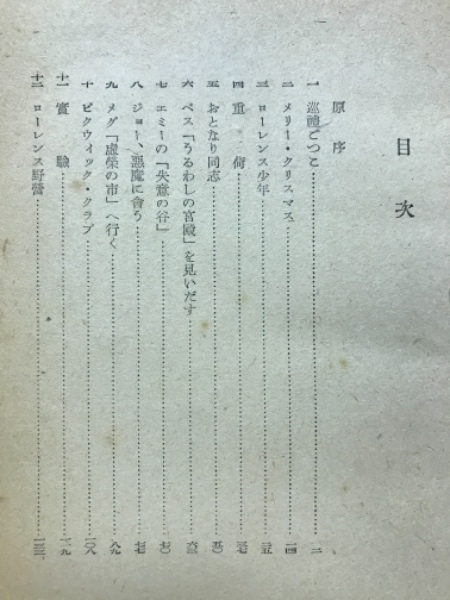 目次
原序
一 巡禮ごつこ 一
二 メリー・クリスマス 一四
三 ローレンス少年 二五
四 重荷 三七
五 おとなり同志 五〇
六 ベス「うるわしの宮殿」を見いだす 六三
七 エミーの「失意の谷」 七〇
八 ジョー、惡魔に會う 七七
九 メグ「虚榮の市」へ行く 八九
十 ピクウィック・クラブ 一〇八
十一 實驗 一一九
十二 ローレンス野營